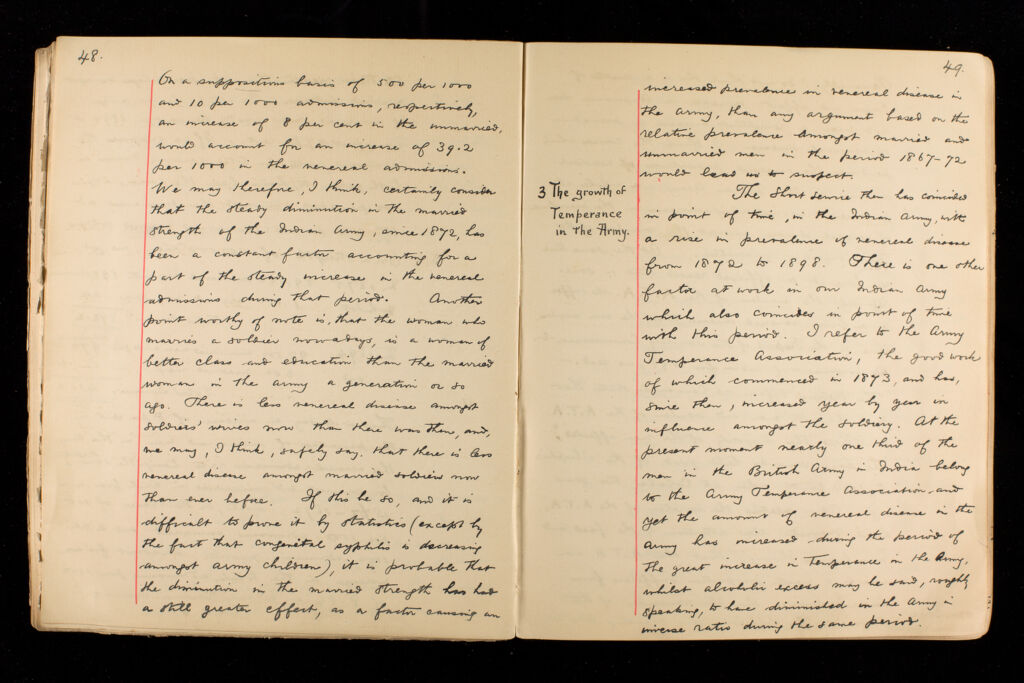 48.
On a suppositious basis of 500 per 1000
and 10 per 1000 admissions, respectively,
an increase of 8 per cent in the unmarried,
would account for an increase of 39.2
per 1000 in the venereal admissions.
We may therefore, I think, certainly consider
that the steady diminution in the married
strength of the Indian Army, since 1872, has
been a constant factor accounting for a
part of the steady increase in the venereal
admissions during that period. Another
point worthy of note is, that the woman who
marries a soldier nowadays, is a woman of
better class and education than the married
woman in the army a generation or so
ago. There is less venereal disease amongst
soldiers' wives now than there was then, and,
we may, I think, safely say, that there is less
venereal disease amongst married soldiers now
than ever before. If this be so, and it is
difficult to prove it by statistics (except by
the fact that congenital syphilis is decreasing
amongst army children), it is probable that
the diminution in the married strength has had
a still greater effect, as a factor causing an
49.
increased prevalence in venereal disease in
the army, than any argument based on the
relative prevalence amongst married and
unmarried men in the period 1867-72
would lead us to suspect.
3 The growth of
Temperance
in The Army.
The Short Service then has coincided
in point of time, in the Indian Army, with
a rise in prevalence of venereal disease
from 1872 to 1898. There is one other
factor at work in our Indian Army
which also coincides in point of time
with this period. I refer to the Army
Temperance Association, the good work
of which commenced in 1873, and has,
since then, increased year by year in
influence amongst the soldiery. At the
present moment nearly one third of the
men in the British Army in India belong
to the Army Temperance Association, and
yet the amount of venereal disease in the
Army has increased during the period of
the great increase in Temperance in the Army,
whilst alcoholic excess may be said, roughly
speaking, to have diminished in the Army in
inverse ratio during the same period.